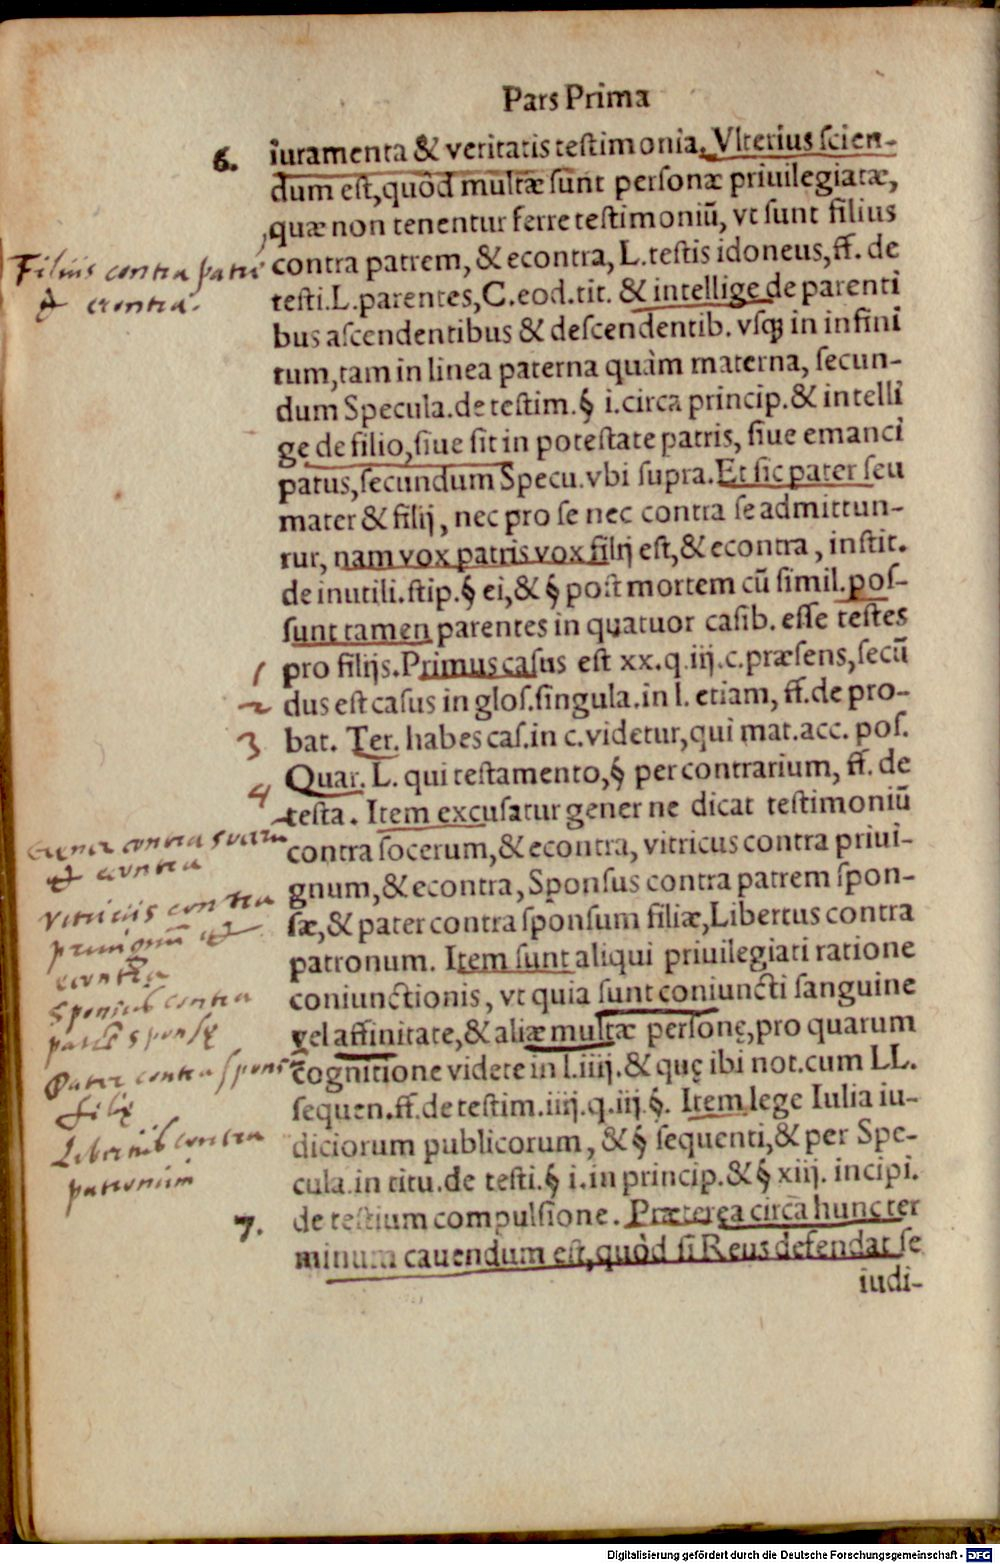 Pars Prima
6. iuramenta & veritatis testimonia. Vlterius scien-
dum est, quòd multæ sunt personæ priuilegiatæ,
quæ non tenentur ferre testimoniũ, vt sunt filius
Filius contra patrē
contra patrem, & econtra, L. testis idoneus, ff. de
& econtra.
testi. L. parentes, C. eod. tit. & intellige de parenti
bus ascendentibus & descendentib. vsq; in infini
tum, tam in linea paterna quàm materna, secun-
dum Specula. de testim. § i. circa princip. & intelli
ge de filio, siue sit in potestate patris, siue emanci
patus, secundum Specu. vbi supra. Et sic pater seu
mater & filij, nec pro se nec contra se admittun-
tur, nam vox patris vox filij est, & econtra, instit.
de inutili. stip. § ei, & § post mortem cũ simil. pos-
sunt tamen parentes in quatuor casib. esse testes
1 pro filijs. Primus casus est xx. q. iij. c. præsens, secũ
2 dus est casus in glos. singula. in l. etiam, ff. de pro-
3 bat. Ter. habes cas. in c. videtur, qui mat. acc. pos.
4 Quar. L. qui testamento, § per contrarium, ff. de
testa. Item excusatur gener ne dicat testimoniũ
Gener contra socerū
& econtra
contra socerum, & econtra, vitricus contra priui-
gnum, & econtra, Sponsus contra patrem spon-
Vitricus contra
priuignū &
econtra
sæ, & pater contra sponsum filiæ, Libertus contra
patronum. Item sunt aliqui priuilegiati ratione
coniunctionis, vt quia sunt coniuncti sanguine
Sponsus contra
patrē sponsę
vel affinitate, & aliæ multæ personę, pro quarum
Pater contra sponsū
filię
cognitione videte in l. iiij. & quę ibi not. cum LL.
sequen. ff. de testim. iiij. q. iij. §. Item lege Iulia iu-
Libertus contra
patronum
diciorum publicorum, & § sequenti, & per Spe-
cula. in titu. de testi. § i. in princip. & § xiij. incipi.
7. de testium compulsione. Præterea circa hunc ter
minum cauendum est, quòd si Reus defendat se
iudi-
Digitalisierung gefördert durch die Deutsche Forschungsgemeinschaft - DFG